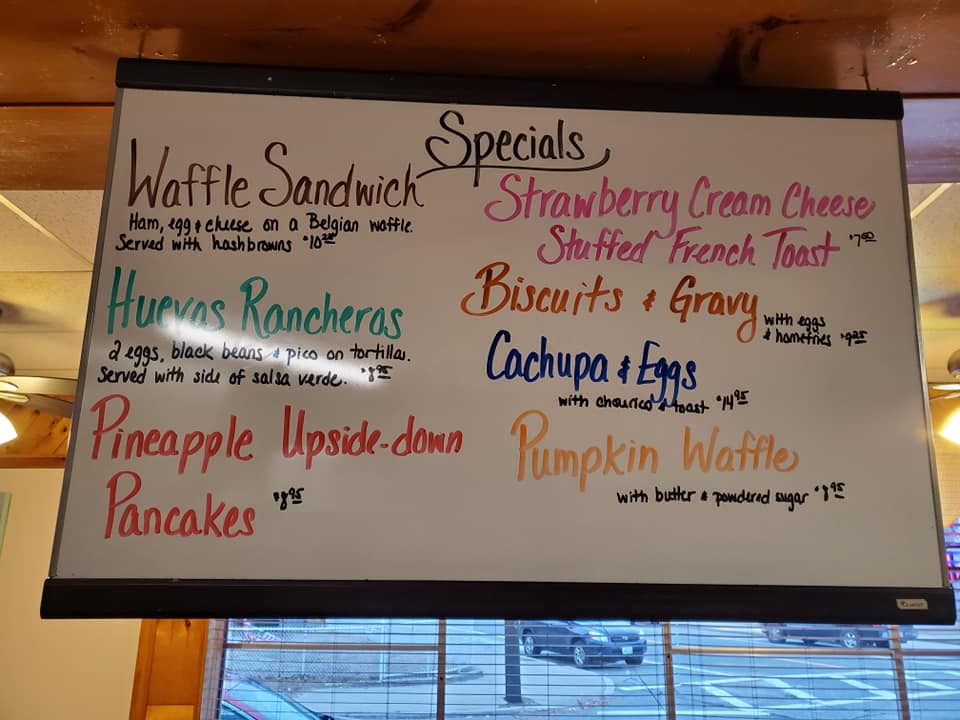 Specials
Waffle Sandwich
Ham, egg & cheese on a Belgian waffle.
Served with hashbrowns
Huevos Rancheros
2 eggs, black beans & pico on tortillas.
Served with side of salsa verde. $8.95
Pineapple Upside-down
Pancakes $8.95
Strawberry Cream Cheese
Stuffed French Toast
Biscuits & Gravy
with eggs
& homefries $9.25
Cachupa & Eggs
with chourico & toast $14.95
Pumpkin Waffle
with butter & powdered sugar $8.95